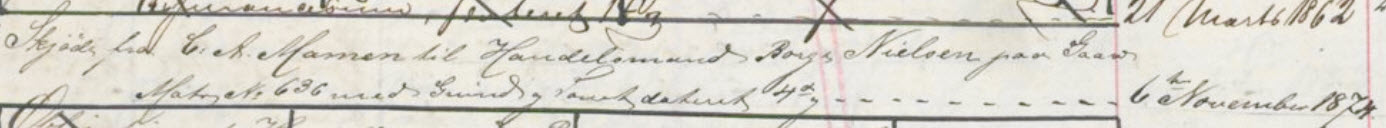 21 Marts 1862
Skjöde fra C. A. Mamen til Handelsmand Borge Nielsen paa Gaard
Matr. No 636 med Grund og Tomt, dateret 4de - - - - - - - - - - - 6th November 1874.